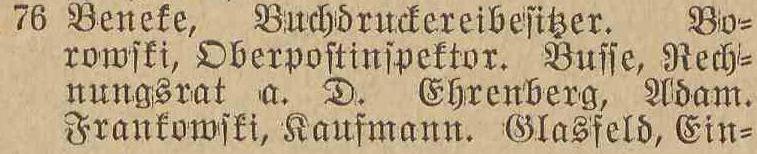 76 Beneke, Buchdruckereibesitzer. Bo-
rowski, Oberpostinspektor. Busse, Rech-
nungsrat a. D. Ehrenberg, Adam.
Frankowski, Kaufmann. Glasfeld, Ein-